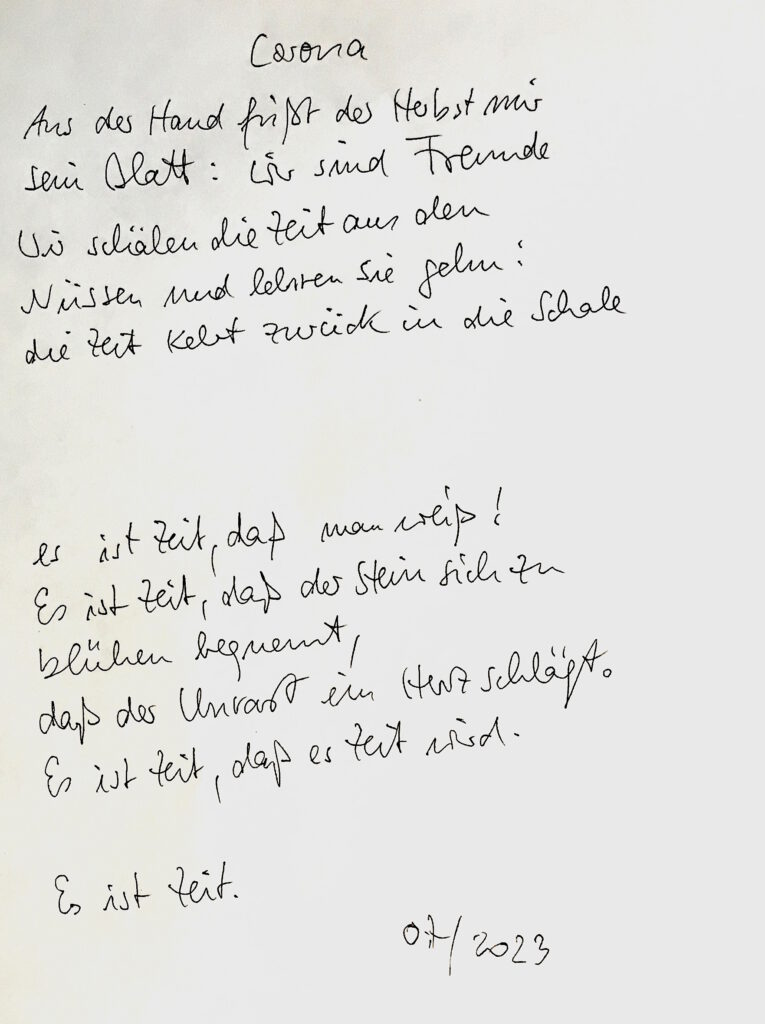 Corona
Aus der Hand frißt der Herbst mir
sein Blatt: wir sind Freunde
Wir schälen die Zeit aus den
Nüssen und lehren sie gehn:
die Zeit kehrt zurück in die Schale
es ist Zeit, daß man weiß!
Es ist Zeit, daß der Stein sich zu
blühen bequemt,
daß der Unrast ein Herz schlägt.
Es ist Zeit, daß es Zeit wird.
Es ist Zeit.
07/2023